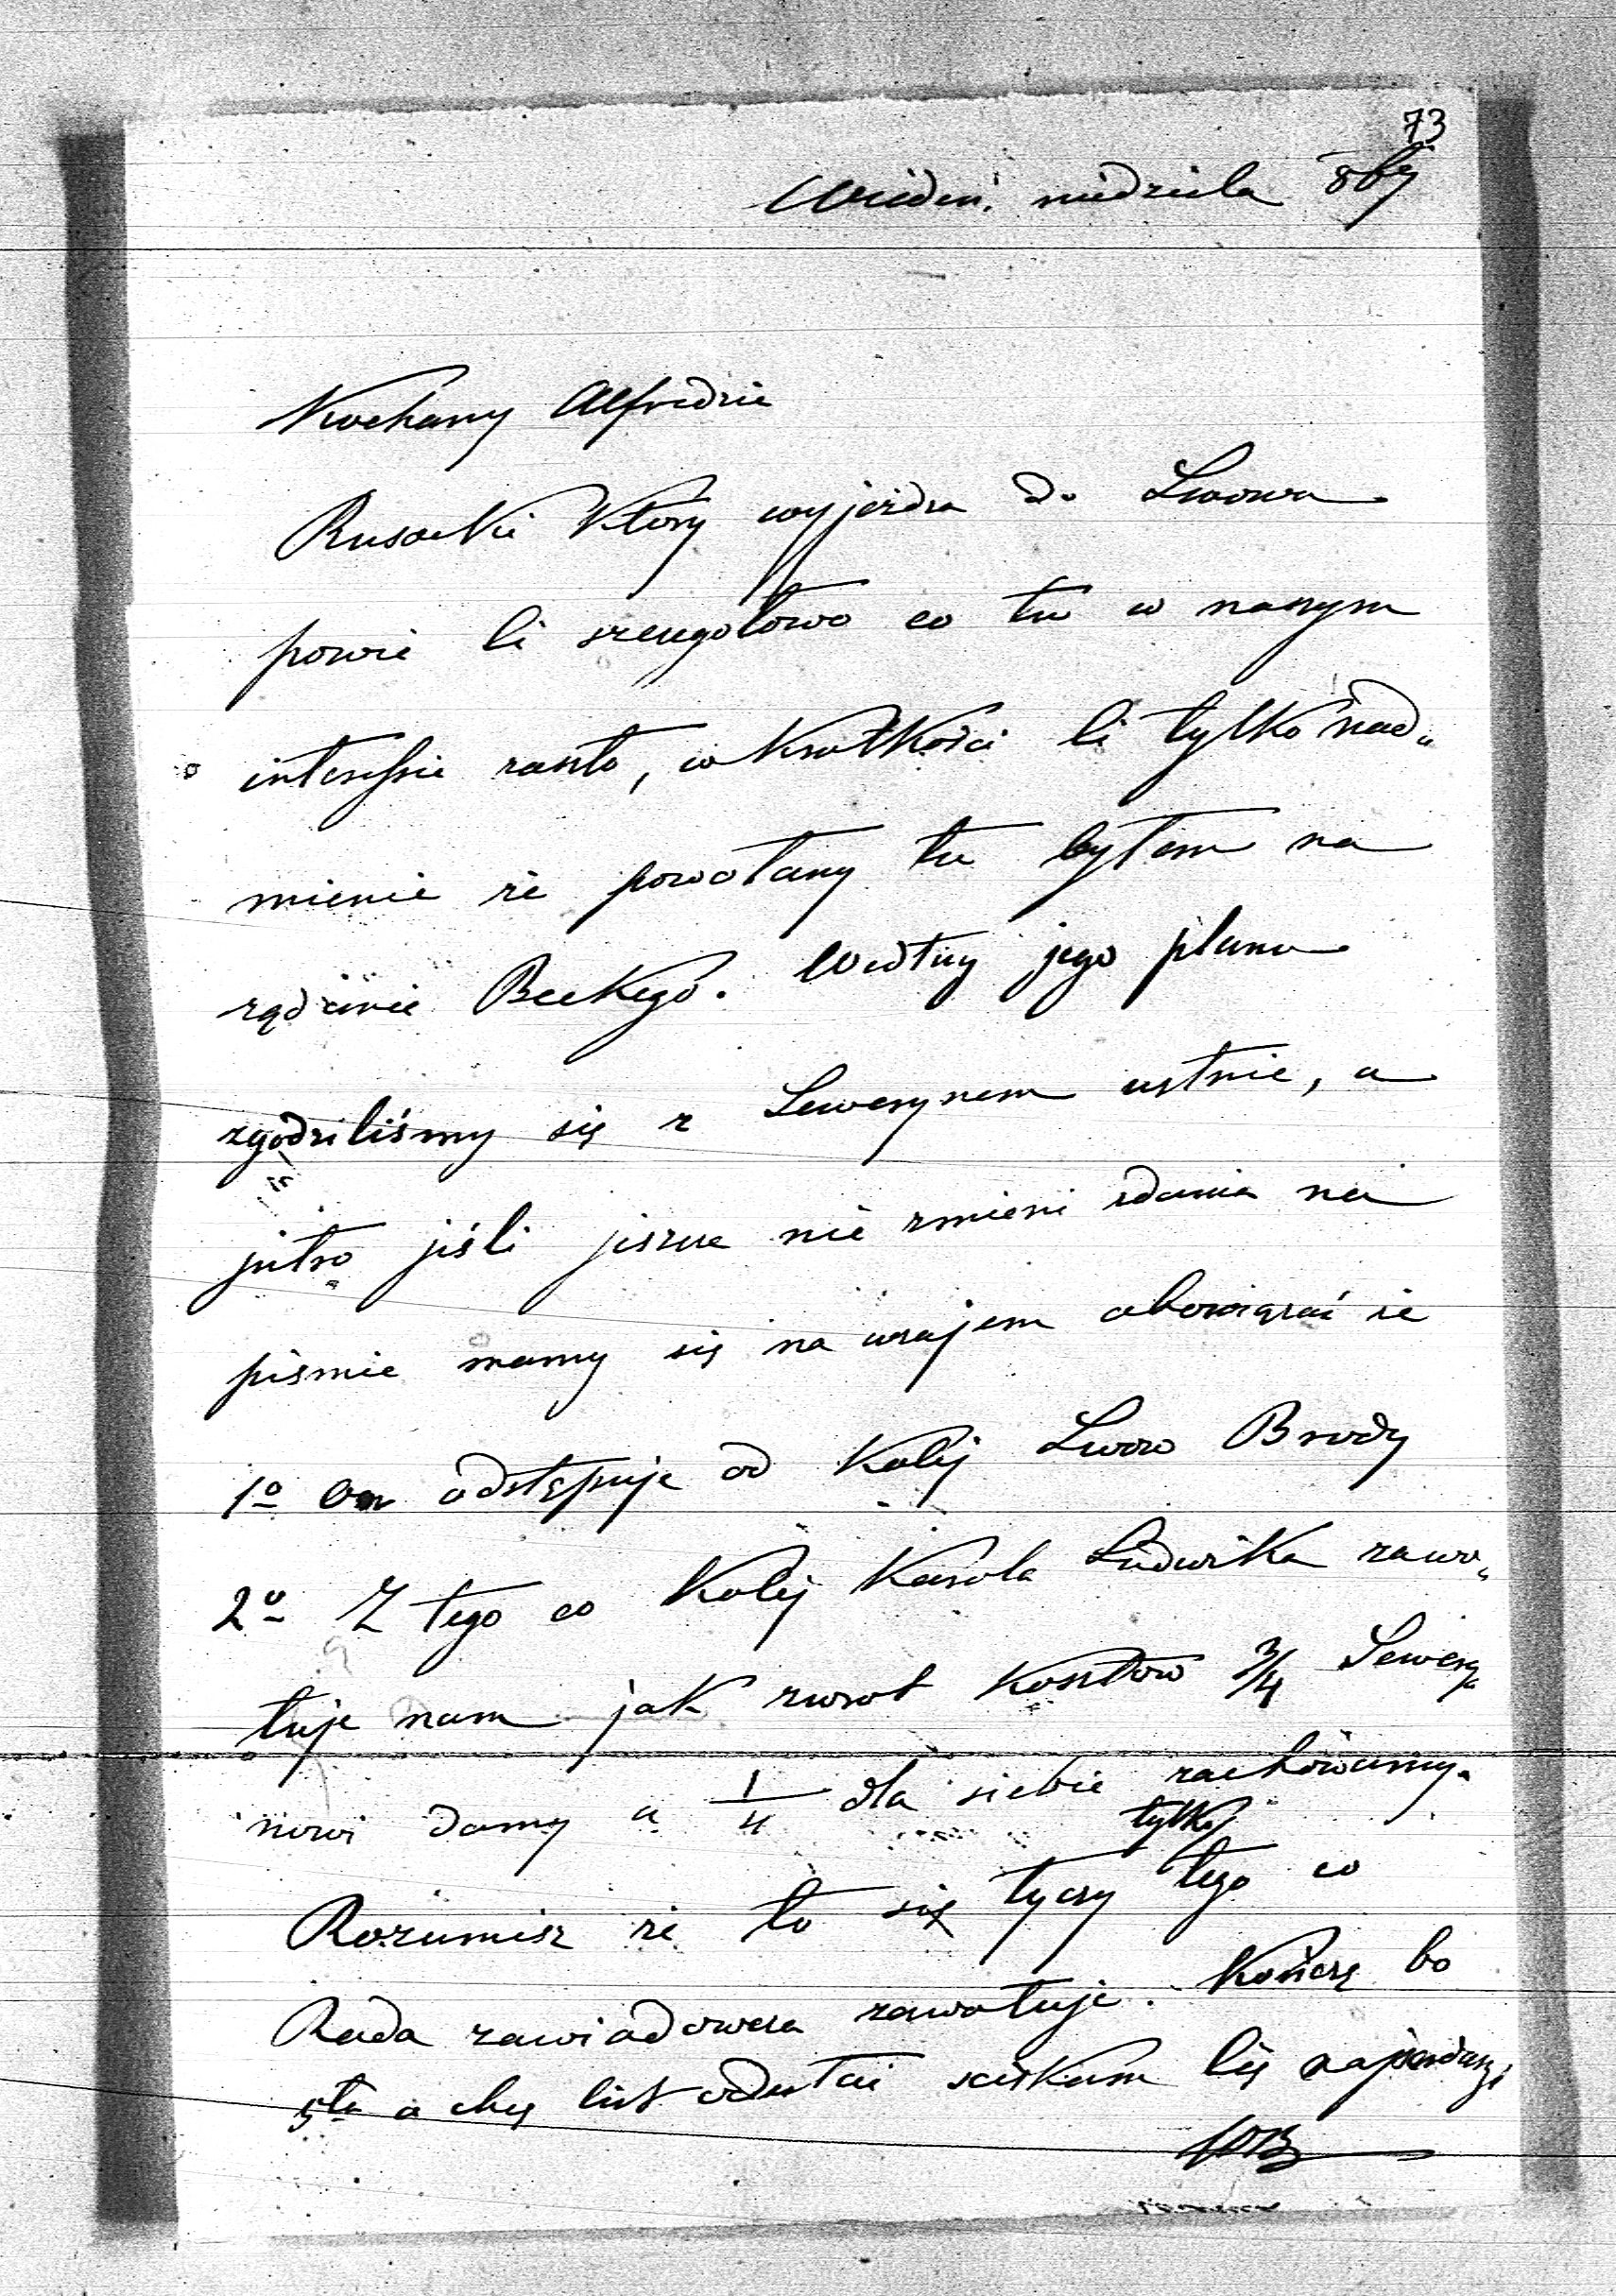 73
Wiedeń niedziela 8by
Kochany Alfredzie
Rusocki Ktory wyjeżdza do Lwowa
powie Ci szczegołowo co tu w naszym
interessie zaszło, w Krotkości Ci tylko nad„
mienie że powołany tu bytem na
rządzinie Beekego. Według jego planu
zgodziliśmy się z Sewerynem ustnie, a
jutro jeśli jeszcze nie zmieni zdania na
piśmie mamy się na wzajem obowiązać że
1o On odstępuje od Kolej Lwow Brody
2o Z tego co Kolej Karola Ludwika zawo„
tuje nam jak zwrot Kosztow 3/4 Sewery
nowi damy a 1/4 dla siebie zachowamy.
tylko
Rozumisz że to się tyczy tego co
Rada zawiadowcza zawotuje. Kończę bo
5ta a chcę list odesłać sciskam Cię najserdeczi